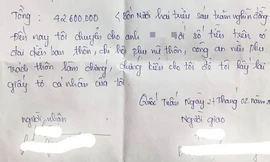 Tổng: 42.600.000 (Bốn mươi hai triệu sáu trăm nghìn đồng
Đến nay tôi chuyển cho anh số tiền trên có
đại diện ban thôn, chi hội phụ nữ thôn, công an viên phụ
trách thôn làm chứng, chứng kiến cho tôi để tôi lấy lại
giấy tờ cá nhân của tôi
Quốc Tuấn Ngày 24 tháng 02 năm
người nhận
Người giao